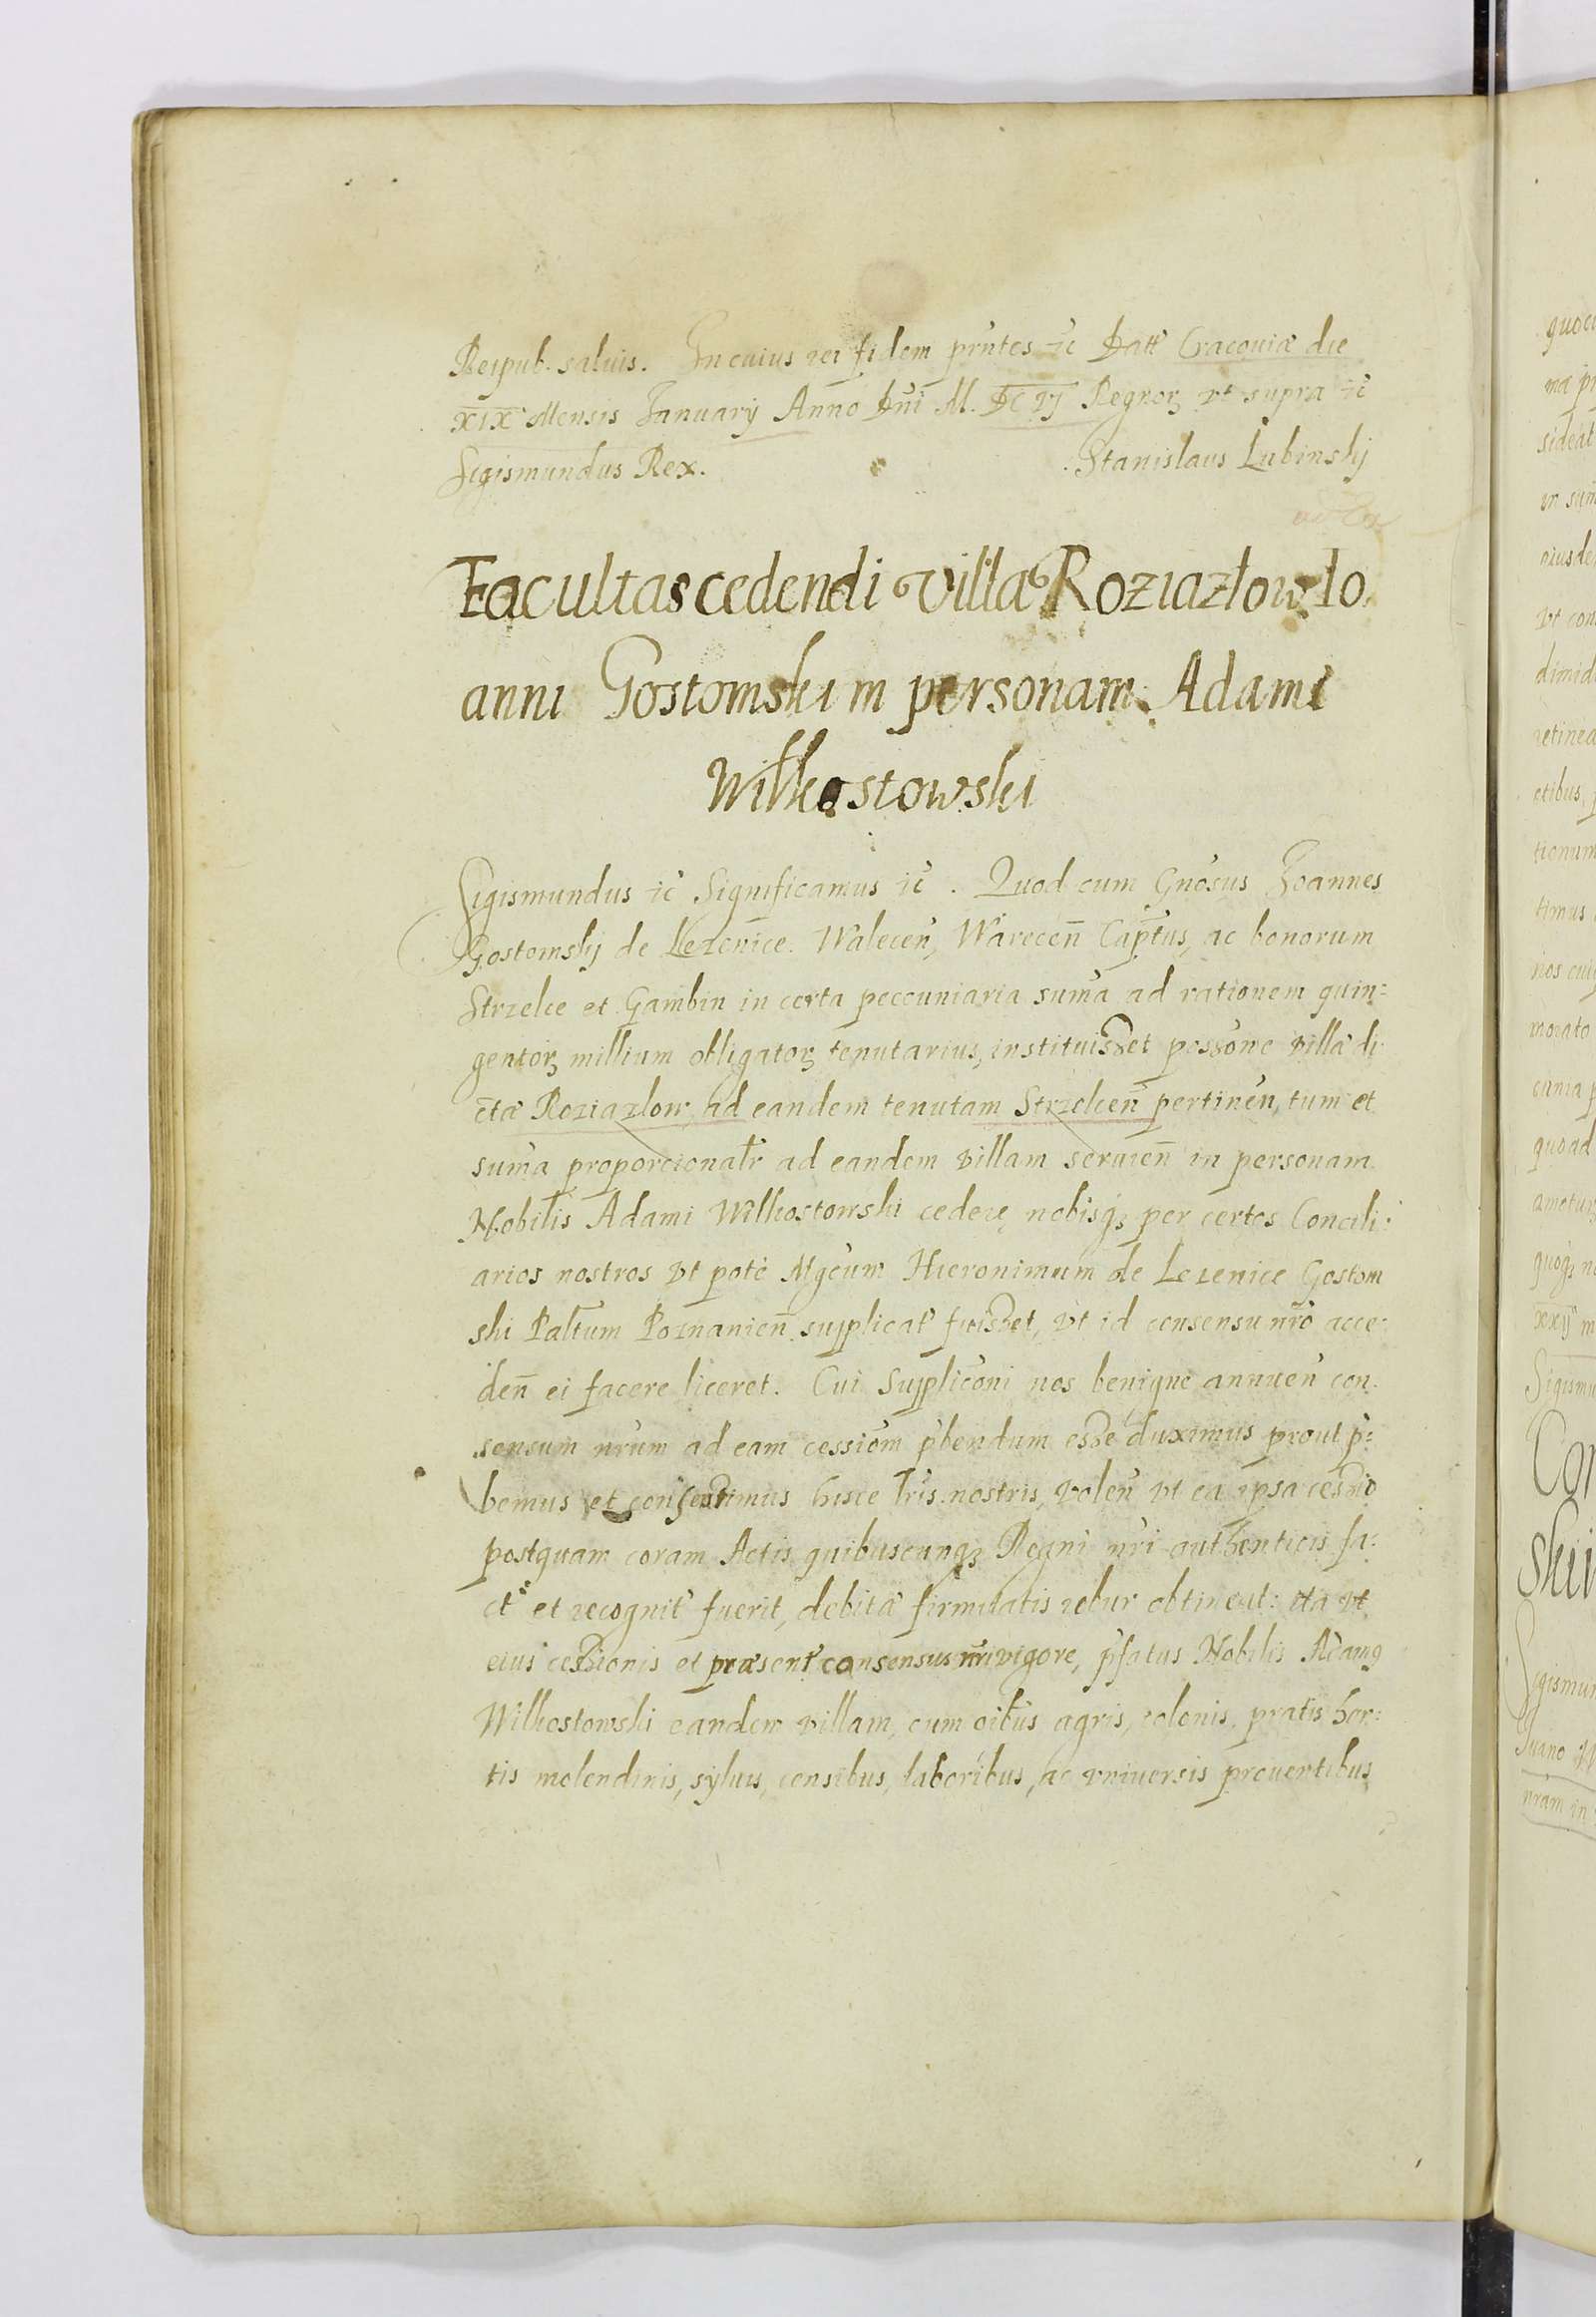 Reipub. saluis. In cuius rei fidem pr̃ntes ic̃ Datt̃ Cracouiæ die
XIX Mensis Januarij Anno Dñi M. DC VJ Regnorꝫ vt supra ic̃
Sigismundus Rex. Stanislaus Lubinskj
Facultas cedendi Villa Roziazłow Io
anni Gostomski in personam Adami
Wilkostowski
Sigismundus ic̃ Significamus ic̃. Quod cum Gnõsus Joannes
Gostomskj de Lezenice. Walecen̄, Warecen̄ Cap̃tus, ac bonorum
Strzelce et Gambin in certa peccuniaria sum̃a ad rationem quin:
gentorꝫ millium obligatorꝫ tenutarius, instituisset possõne villæ di
ctæ Roziazlow ad eandem tenutam Strzelcen̄ pertinen̄, tum et
sum̃a proporcionalr̃ ad eandem villam seruien̄ in personam
Nobilis Adami Wilkostowski cedere, nobisqꝫ per certos Concili:
arios nostros vt pote Mgcum Hieronimum de Lezenice Gostom
ski Paltum Poznanien̄ supplicat̃ fuisset, vt id consensu nr̃o acce:
den̄ ei facere liceret. Cui Supplicõni nos benigne annuen̄ con
sensum nr̃um ad eam cessiom̃ p̃bendum esse duximus prout p̃:
bemus et consentimus hisce lr̃is nostris, volen̄ vt ea ipsa cessio
postquam coram Actis quibuscunqꝫ Regni nr̃i authenticis fa:
ct̃ et recognit̃ fuerit, debitæ firmitatis robur obtineat: ita vt
eius cessionis et præsent̃ consensus nr̃i vigore, p̃fatus Nobilis Adamꝯ
Wilkostowski eandem villam, cum oib̃us agris, colonis, pratis hor:
tis molendinis, syluis, censibus, laboribus, ac vniuersis prouentibus